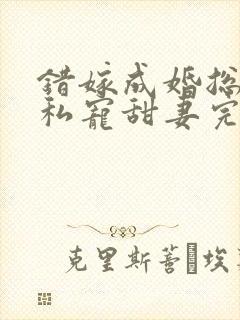 错嫁成婚总
私宠甜妻完
克里斯蒂·埃